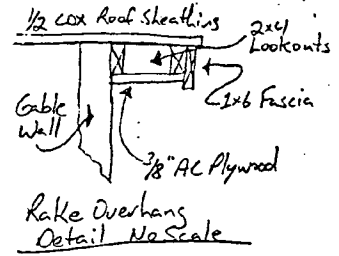 1/2 CDX Roof Sheathing
2x4
Lookouts
1x6 Fascia
Gable
Wall
3/8" AC Plywood
Rake Overhang
Detail No Scale